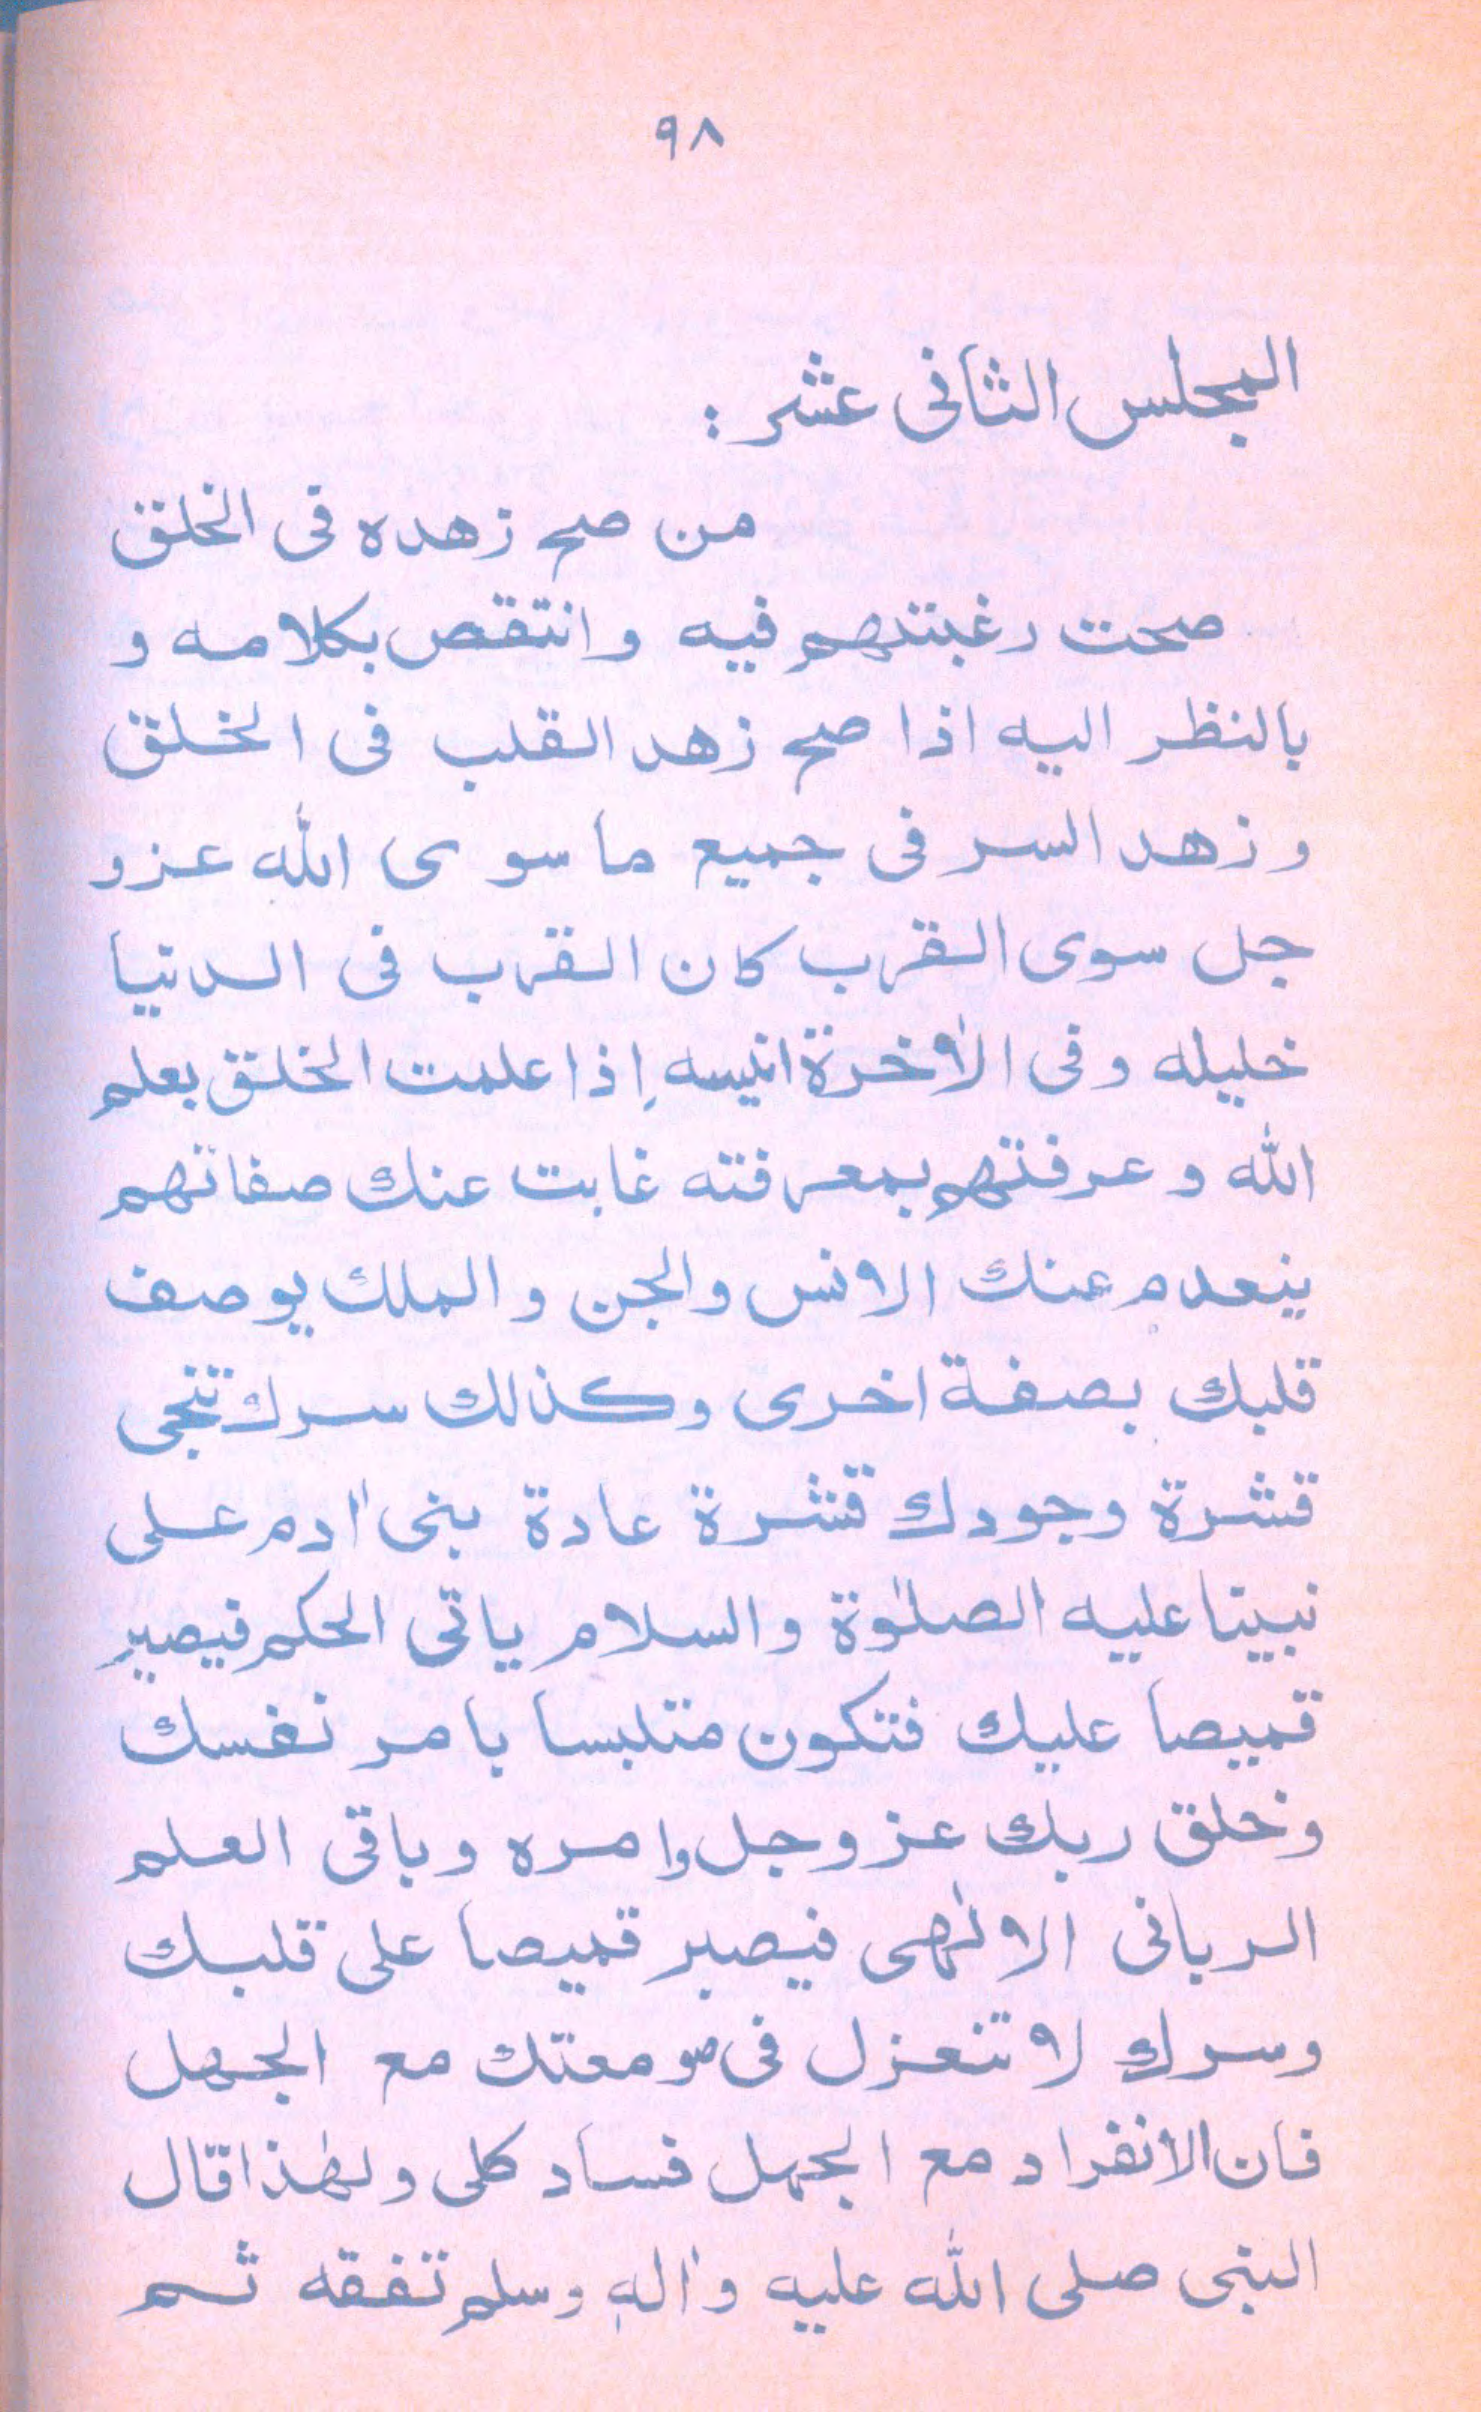 ٩٨
المجلس الثانى عشر :
من صح زهده فى الخلق
صحت رغبتهم فيه وانتقص بكلامه و
بالنظر اليه اذا صح زهد القلب فى الخلق
وزهد السر فى جميع ما سوى الله عزو
جل سوى القرب كان القرب فى الدنيا
خليله وفى الاٰخرة انيسه إذا علمت الخلق بعلم
الله وعرفتهم بمعرفته غابت عنك صفاتهم
ينعدم عنك الانس والجن والملك يوصف
قلبك بصفة اخرى وكذلك سرك تنجى
قشرة وجودك قشرة عادة بنى اٰدم على
نبينا عليه الصلوٰة والسلام ياتى الحكم فيصير
قميصا عليك فتكون متلبسا بامر نفسك
وخلق ربك عز وجل وامره وباقى العلم
الربانى الالٰهى فيصير قميصا على قلبك
وسرك لا تنعزل فى صومعتك مع الجهل
فان الانفراد مع الجهل فساد كلى ولهٰذا قال
النبى صلى الله عليه واٰلهٖ وسلم تفقه ثم